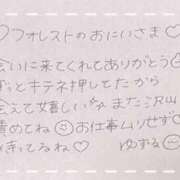 ♡フォレストのおにいさま♡
会いに来てくれてありがとう
ずっとキテネ押してたから
会えて嬉しい また沢山
責めてね お仕事ムリせず
待ってるね♡ ゆずる